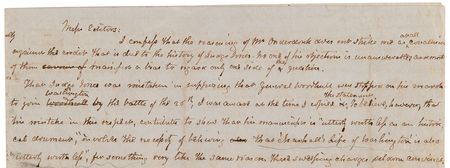 Mess Editors:
I confess that the reasoning of Mr Onderdonk does not strike me as at all conclusive
against the credit that is due to the history of Judge Jones. No one of his objections is unanswerable, and most
of them manifest a bias to regard only one side of the question
That Judge Jones was mistaken in supposing that General Woodhull was stopped on his march
to join Washington by the battle of the 28th, I was aware at the time I copied the statement. To believe, however, that
his mistake in this respect, contributes to show that his manuscript is "utterly worthless as an histor-
ical document," involves the necessity of believing that Marshall's Life of Washington is also
"utterly worthless", for something very like the same reason. These sweeping charges seldom convince,